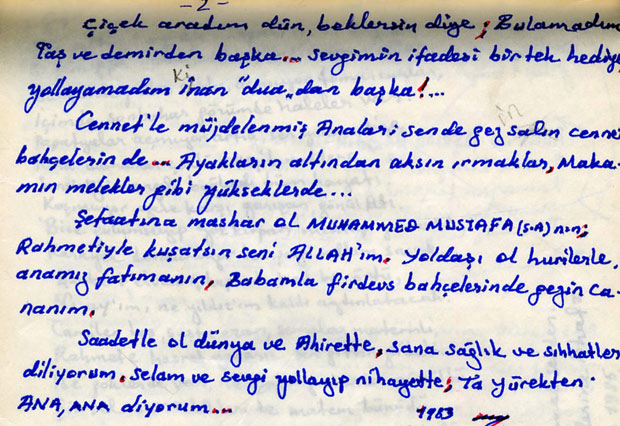 - 2 -
Çiçek aradım dün, beklersin diye, Bulamadım
Taş ve demirden başka... sevgimin ifadesi bir tek hediye
yollayamadım ki inan "dua„dan başka!...
Cennet'le müjdelenmiş Anaları sende gez salın cennetin
bahçelerin de... Ayakların altından aksın ırmaklar, Maka-
mın melekler gibi yükseklerde...
Şefaatına mashar ol MUHAMMED MUSTAFA (S.A) nın;
Rahmetiyle kuşatsın seni ALLAH'ım. Yoldaşı ol hurilerle,
anamız fatımanın, Babamla firdevs bahçelerinde gezin Ca-
nanım.
Saadetle ol dünya ve Ahirette, sana sağlık ve sıhhatler
diliyorum. selam ve sevgi yollayıp nihayette; Ta yürekten.
ANA, ANA diyorum...
1983